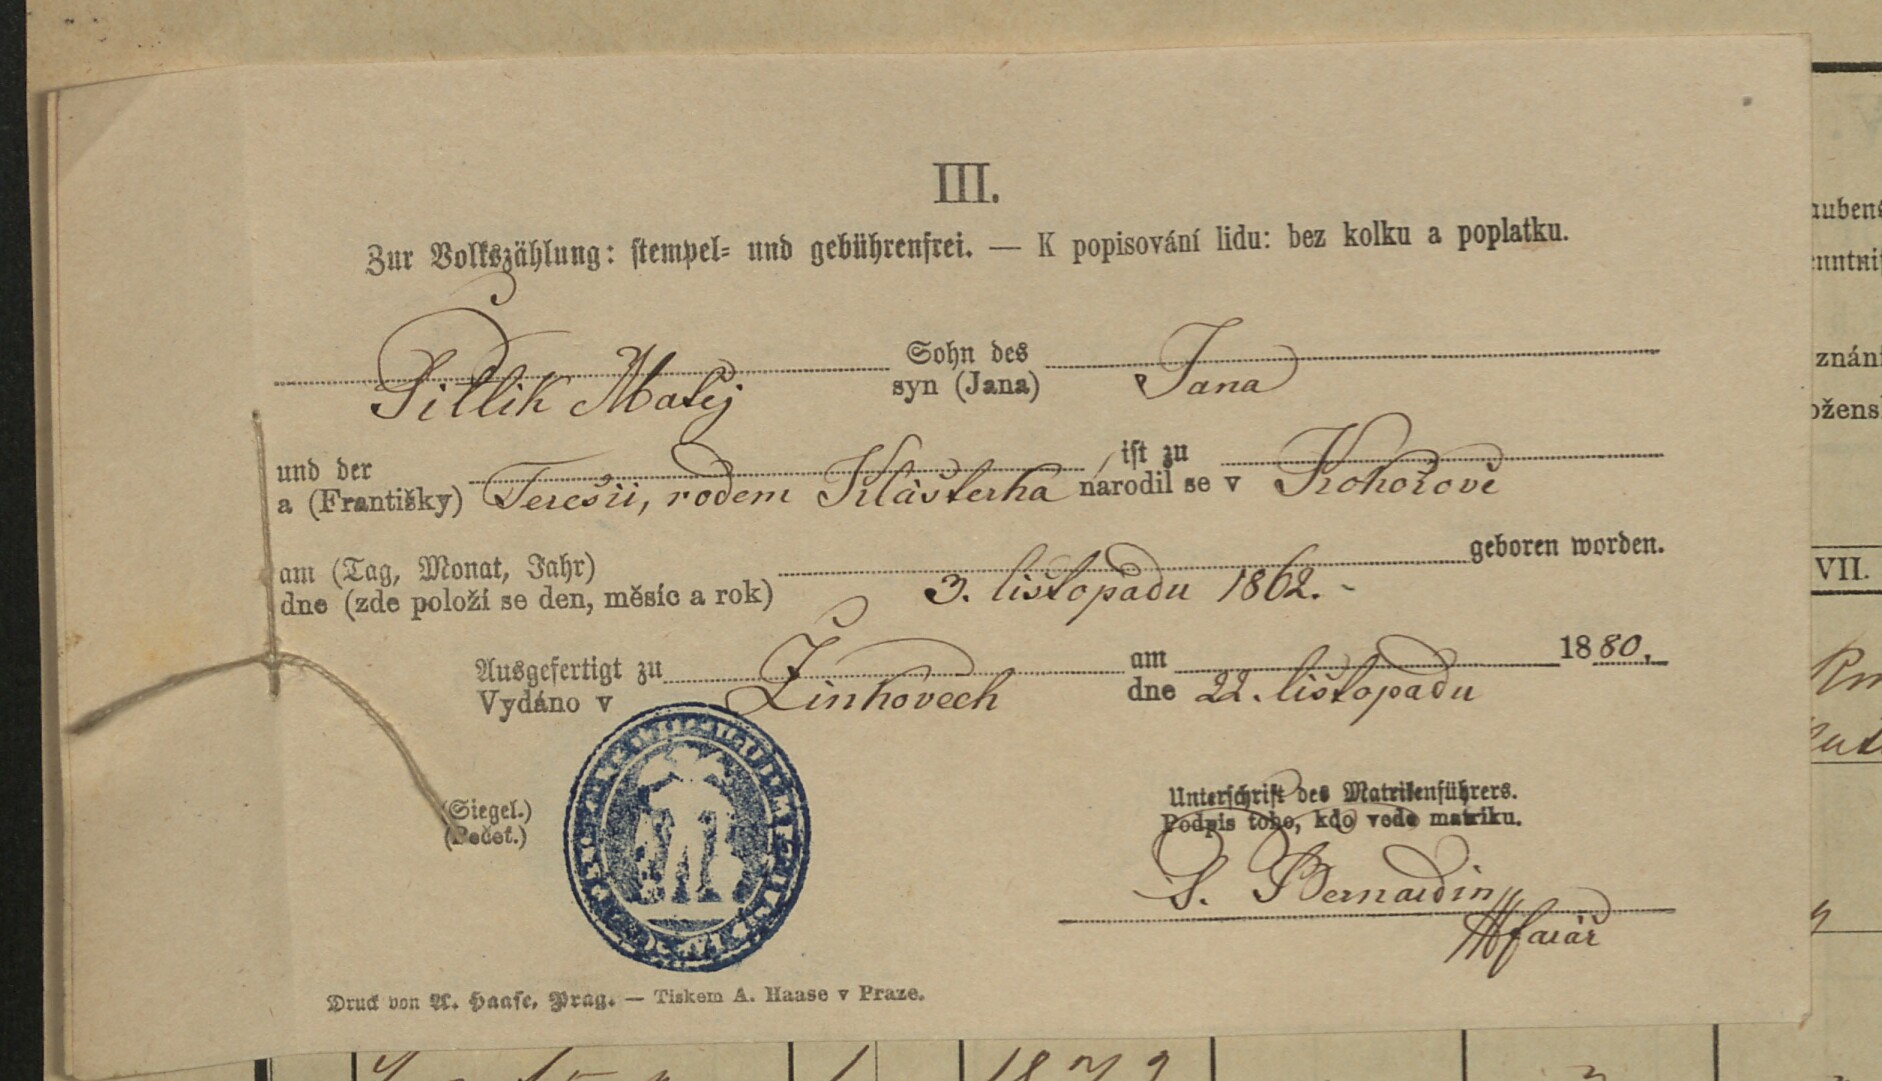 III.
Zur Volkszählung: stempel= und gebührenfrei. — K popisování lidu: bez kolku a poplatku.
Sillik Matěj Sohn des Jana
syn (Jana)
und der
a (Františky) Teresii, rodem Klášterka ist zu
narodil se v Kokořově
am (Tag, Monat, Jahr) geboren worden.
dne (zde položí se den, měsíc a rok) 3. listopadu 1862. -
Ausgefertigt zu am 1880.
Vydáno v Žinkovech dne 22. listopadu
(Siegel.)
(Pečeť.)
Unterschrift des Matrikenführers.
Podpis toho, kdo vede matriku.
S. Bernardin
farář
Druck von A. Haase, Prag. — Tiskem A. Haase v Praze.
znání
VII.